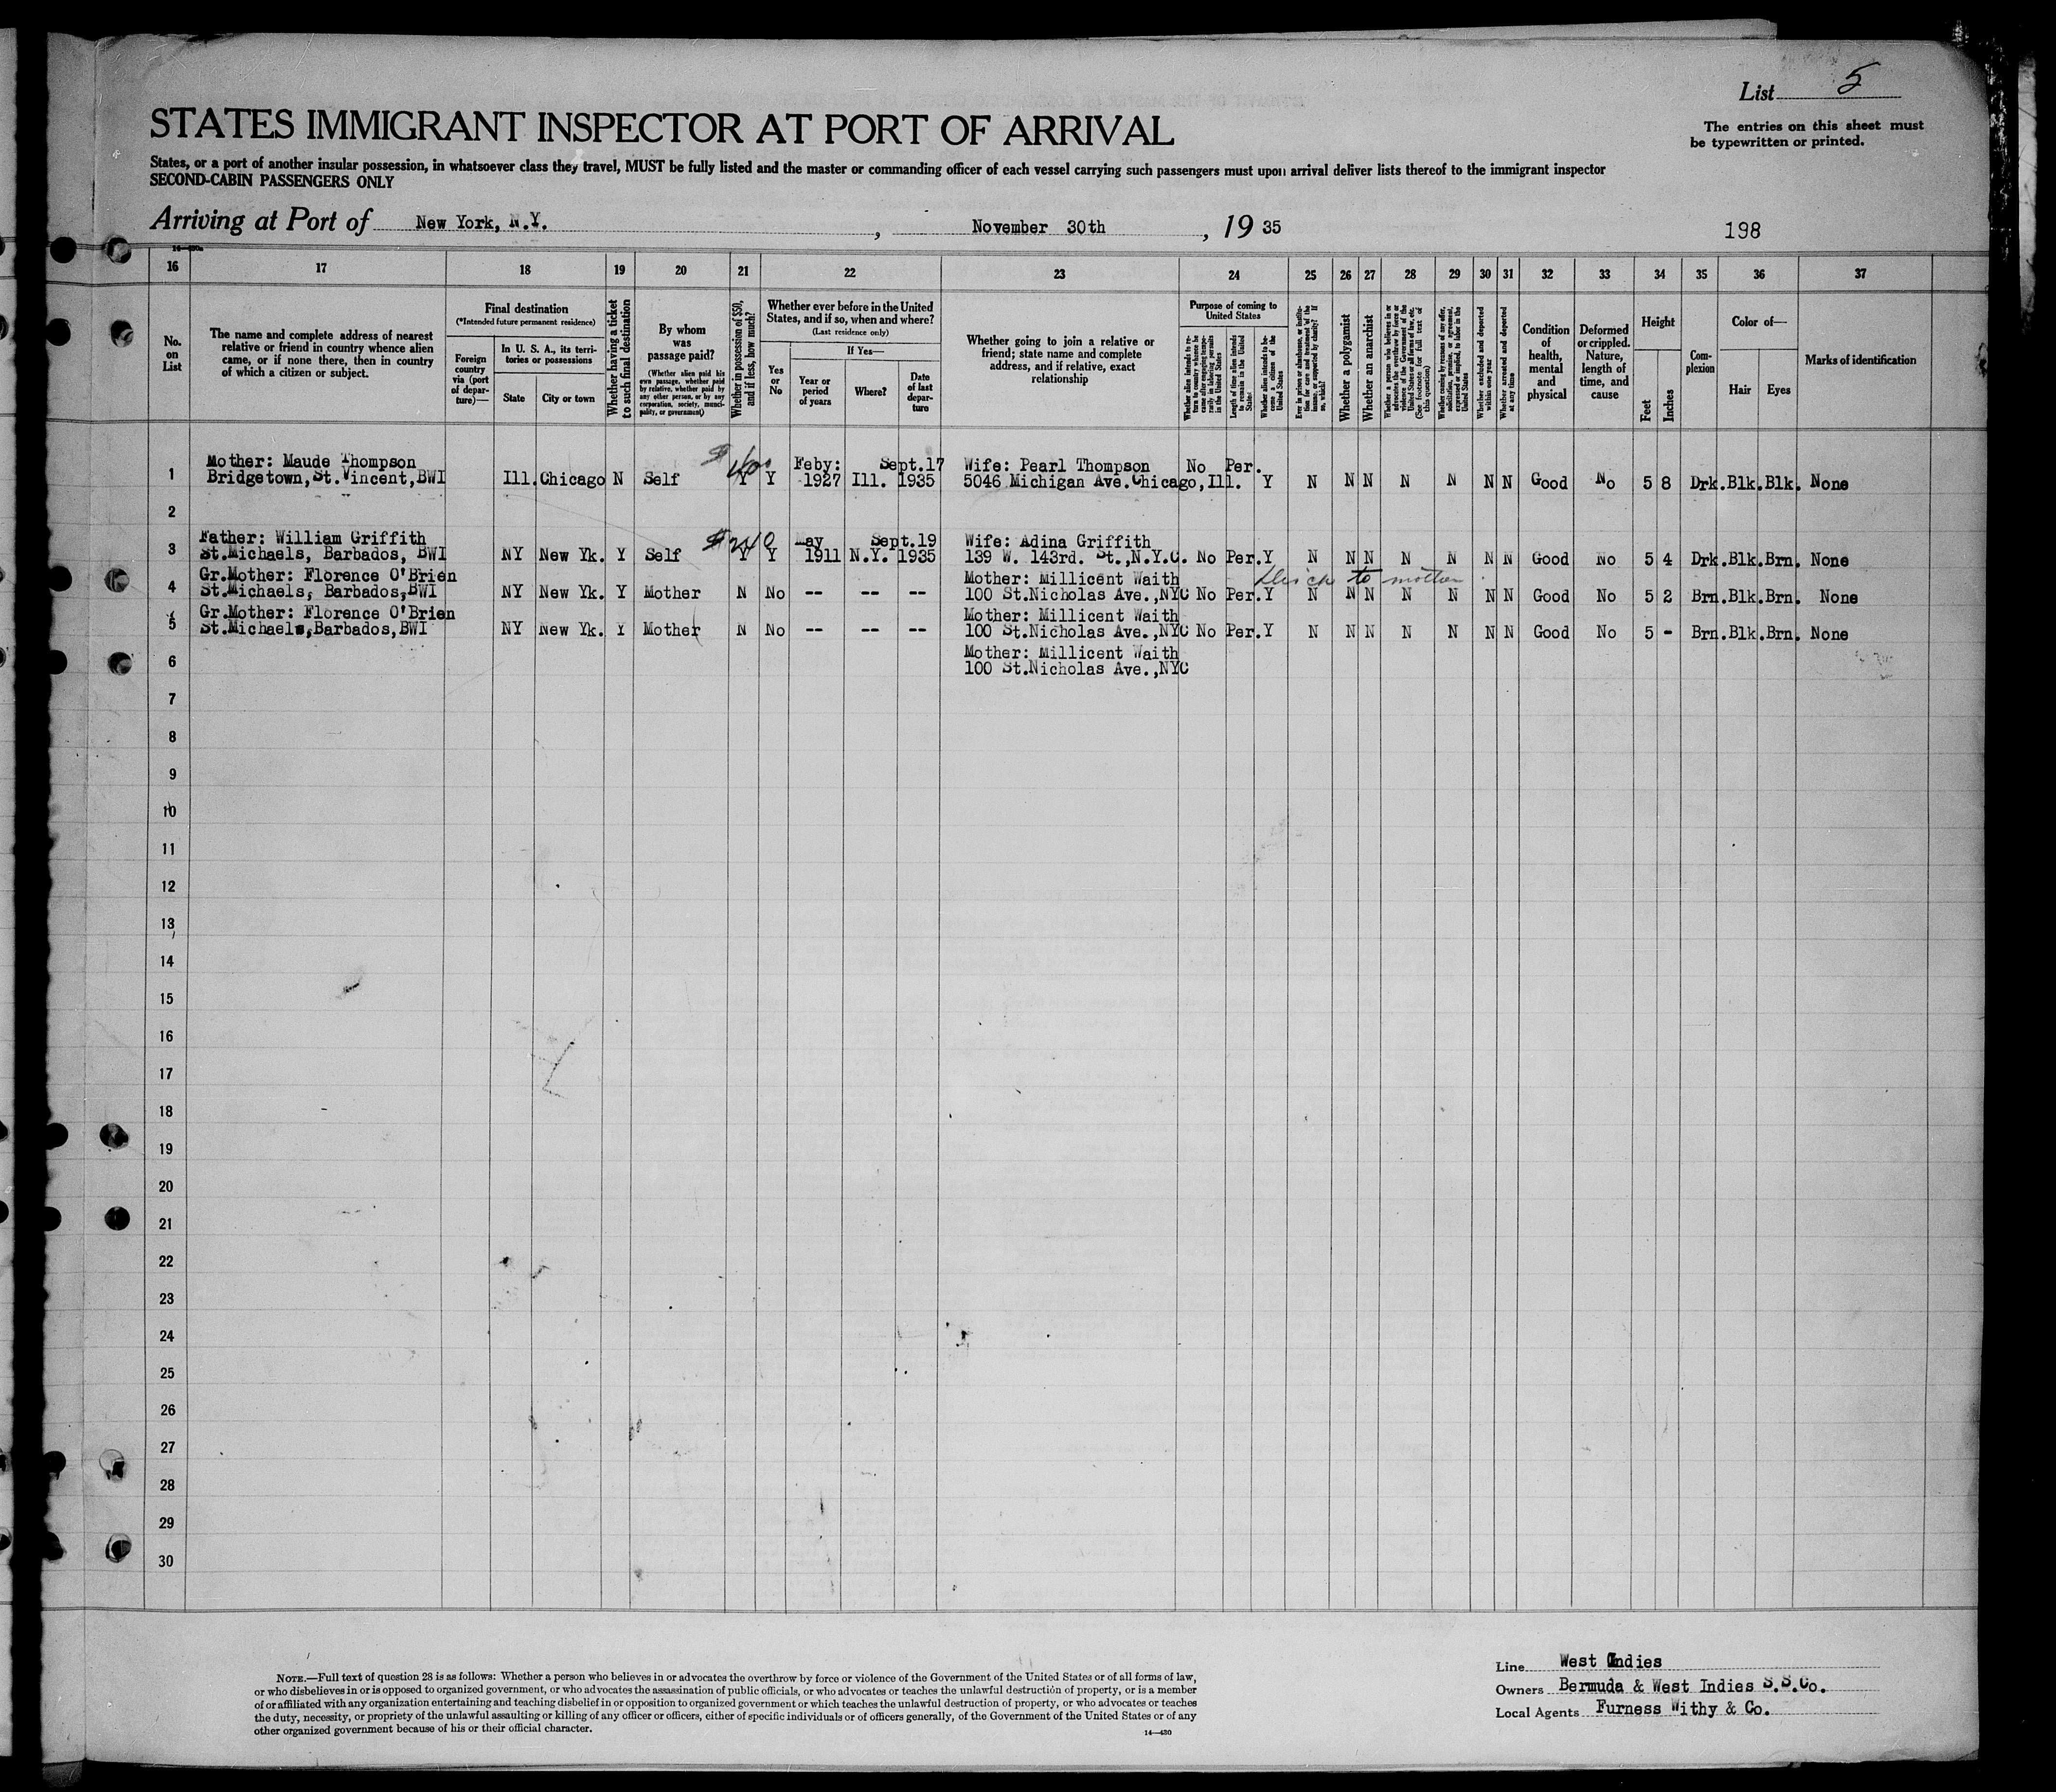 List 5
STATES IMMIGRANT INSPECTOR AT PORT OF ARRIVAL
The entries on this sheet must
be typewritten or printed.
States, or a port of another insular possession, in whatsoever class they travel, MUST be fully listed and the master or commanding officer of each vessel carrying such passengers must upon arrival deliver lists thereof to the immigrant inspector
SECOND-CABIN PASSENGERS ONLY
Arriving at Port of New York, N.Y. , November 30th , 19 35
198
16 17 18 19 20 21 22 23 24 25 26 27 28 29 30 31 32 33 34 35 36 37
No. on List
The name and complete address of nearest
relative or friend in country whence alien
came, or if none there, then in country
of which a citizen or subject.
Final destination
(*Intended future permanent residence)
Foreign country via (port of departure)—
In U. S. A., its territories or possessions
State
City or town
Whether having a ticket to such final destination
By whom was passage paid?
(Whether alien paid his own passage, whether paid by relative, whether paid by any other person, or by any corporation, society, municipality, or government)
Whether in possession of $50, and if less, how much?
Whether ever before in the United
States, and if so, when and where?
(Last residence only)
Yes or No
If Yes—
Year or period of years
Where?
Date of last departure
Whether going to join a relative or
friend; state name and complete
address, and if relative, exact
relationship
Purpose of coming to United States
Length of time alien intends to remain in the United States
Whether alien intends to become a citizen of the United States
Whether a polygamist
Whether an anarchist
Whether excluded and deported within one year
Whether arrested and deported at any time
Condition of health, mental and physical
Deformed or crippled. Nature, length of time, and cause
Height
Feet
Inches
Complexion
Color of—
Hair
Eyes
Marks of identification
Mother: Maude Thompson Feby: Sept.17 Wife: Pearl Thompson No Per.
1 Bridgetown, St. Vincent, BWI Ill. Chicago N Self $400 Y Y 1927 Ill. 1935 5046 Michigan Ave. Chicago, Ill. Y N N N N N N N Good No 5 8 Drk. Blk. Blk. None
2
Father: William Griffith May Sept.19 Wife: Adina Griffith
3 St.Michaels, Barbados, BWI NY New Yk. Y Self $240 Y Y 1911 N.Y. 1935 139 W. 143rd. St.,N.Y.C. No Per. Y N N N N N N N Good No 5 4 Drk. Blk. Brn. None
Gr.Mother: Florence O'Brien Mother: Millicent Waith to mother
4 St.Michaels, Barbados, BWI NY New Yk. Y Mother N No -- -- -- 100 St.Nicholas Ave.,NYC No Per. Y N N N N N N N Good No 5 2 Brn. Blk. Brn. None
Gr.Mother: Florence O'Brien Mother: Millicent Waith
5 St.Michaels,Barbados,BWI NY New Yk. Y Mother N No -- -- -- 100 St.Nicholas Ave.,NYC No Per. Y N N N N N N N Good No 5 - Brn. Blk. Brn. None
6 Mother: Millicent Waith
100 St.Nicholas Ave.,NYC
7
8
9
10
11
12
13
14
15
16
17
18
19
20
21
22
23
24
25
26
27
28
29
30
NOTE.—Full text of question 28 is as follows: Whether a person who believes in or advocates the overthrow by force or violence of the Government of the United States or of all forms of law,
or who disbelieves in or is opposed to organized government, or who advocates the assassination of public officials, or who advocates or teaches the unlawful destruction of property, or is a member
of or affiliated with any organization entertaining and teaching disbelief in or opposition to organized government or which teaches the unlawful destruction of property, or who advocates or teaches
the duty, necessity, or propriety of the unlawful assaulting or killing of any officer or officers, either of specific individuals or of officers generally, of the Government of the United States or of any
other organized government because of his or their official character.
14—430
Line West Indies
Owners Bermuda & West Indies S.S.Co.
Local Agents Furness Withy & Co.